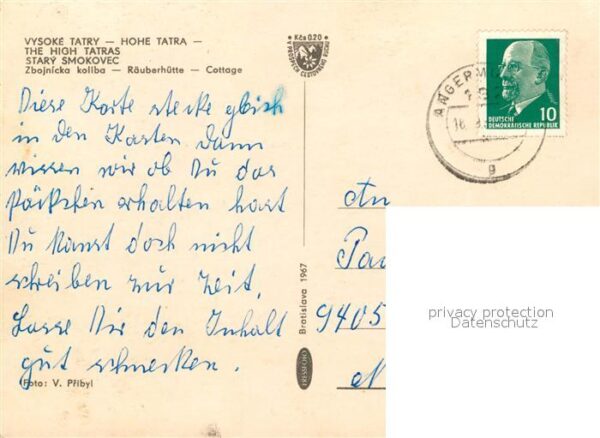 VYSOKÉ TATRY — HOHE TATRA —
THE HIGH TATRAS
STARÝ SMOKOVEC
Zbojnícka koliba — Räuberhütte — Cottage
Kčs 0,20
V PROSPECH CESTOVNÉHO RUCHU
Diese Karte stecke gleich
in den Kasten dann
wissen wir ob Du das
Päckchen erhalten hast
Du kannst doch nicht
schreiben zur Zeit,
Lasse Dir den Inhalt
gut schmecken.
Foto: V. Přibyl
Bratislava 1967
PRESSFOTO
ANGERM
g
DEUTSCHE
DEMOKRATISCHE REPUBLIK
10
An
9405
privacy protection
Datenschutz